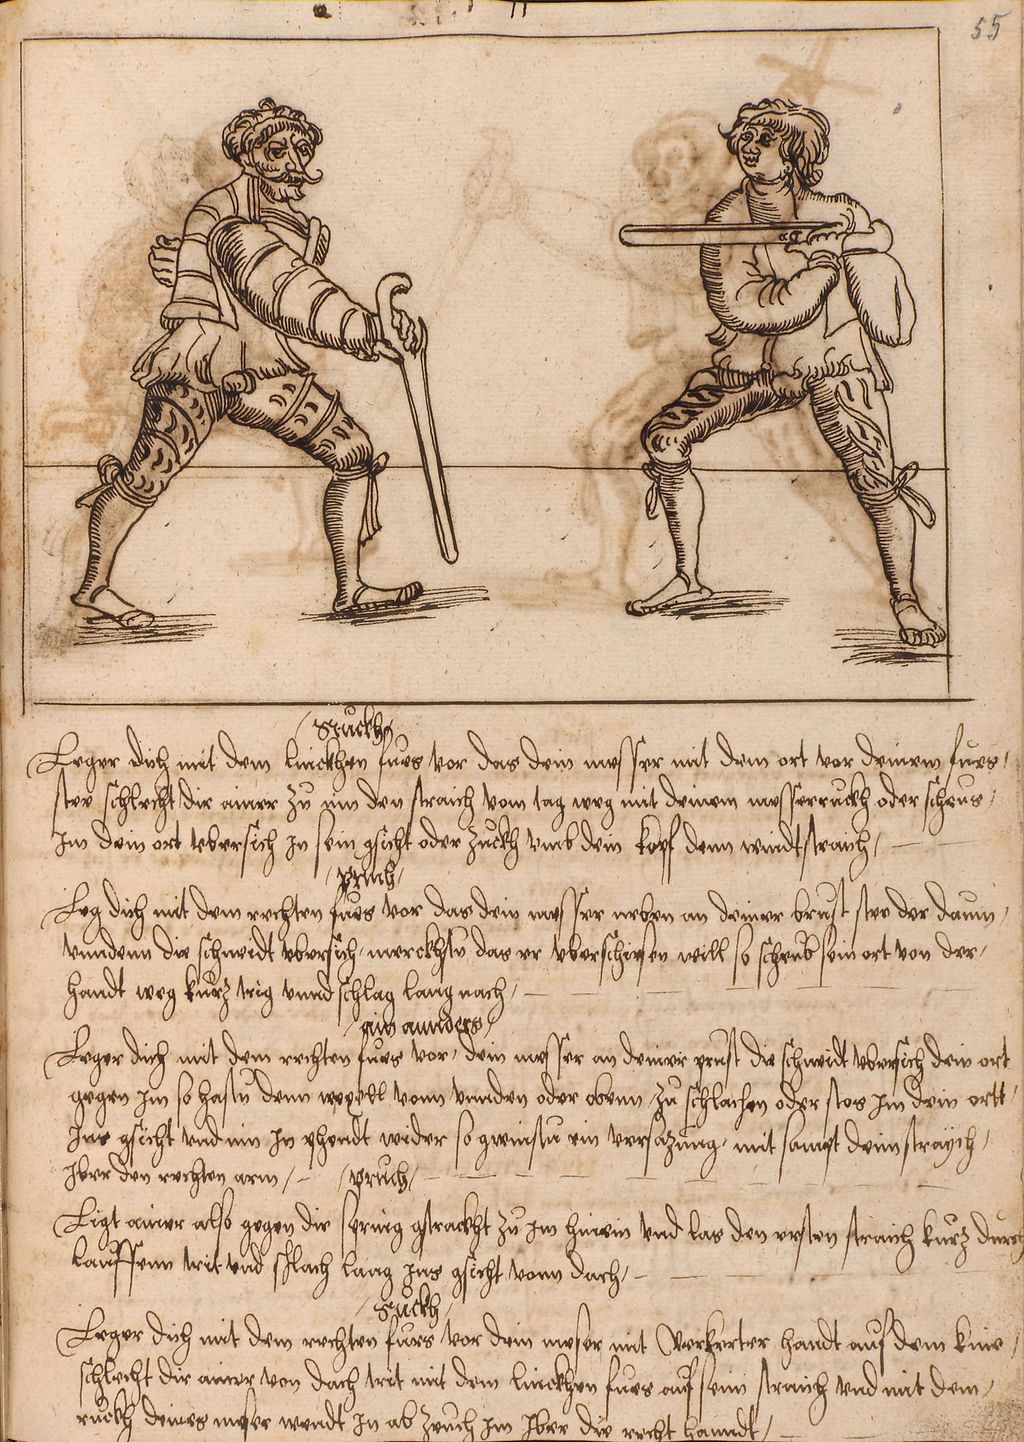 55
Stuckh
Leger dich mit dem linckhen fues vor das dein messer mit dem ort vor deinem fues
stee schlecht dir ainer zu nim den straich vom tag weg mit deinem messerruckh oder scheus
Im dein ort vbersich in sein gsicht oder zuckh vmb dein kopf dem windtstraich
Pruch
Leg dich mit dem rechten fues vor das dein messer neben an deiner brust stee der daum
vnndenn die schneidt vbersich merckhstu das er vberschiesen will so scheub sein ort von der
handt weg kurz trig vnnd schlag lang nach
ain annders
Leger dich mit dem rechten fues vor dein messer an deiner prust die schneidt vbersich dein ort
gegen im so hastu denn vonn vnnden oder obenn zu schlachen oder stos Im dein ortt
Ins gsicht vnd nim In wider so gwinstu ein versazung mit sampt deim straich
Iber den rechten arm
Pruch
Ligt ainer also gegen dir spring gstrackht zu im hinein vnd las den ersten straich kurz durch
lauffenn trit vnd schlach lang ins gsicht vonn dach
Stuckh
Leger dich mit dem rechten fues vor dein messer mit verkerter handt auf dem knie
schlecht dir ainer von dach trit mit dem linckhen fues auf seim straich vnd mit dem
ruckh deines messer wendt In ab zeuch im Iber die recht hanndt